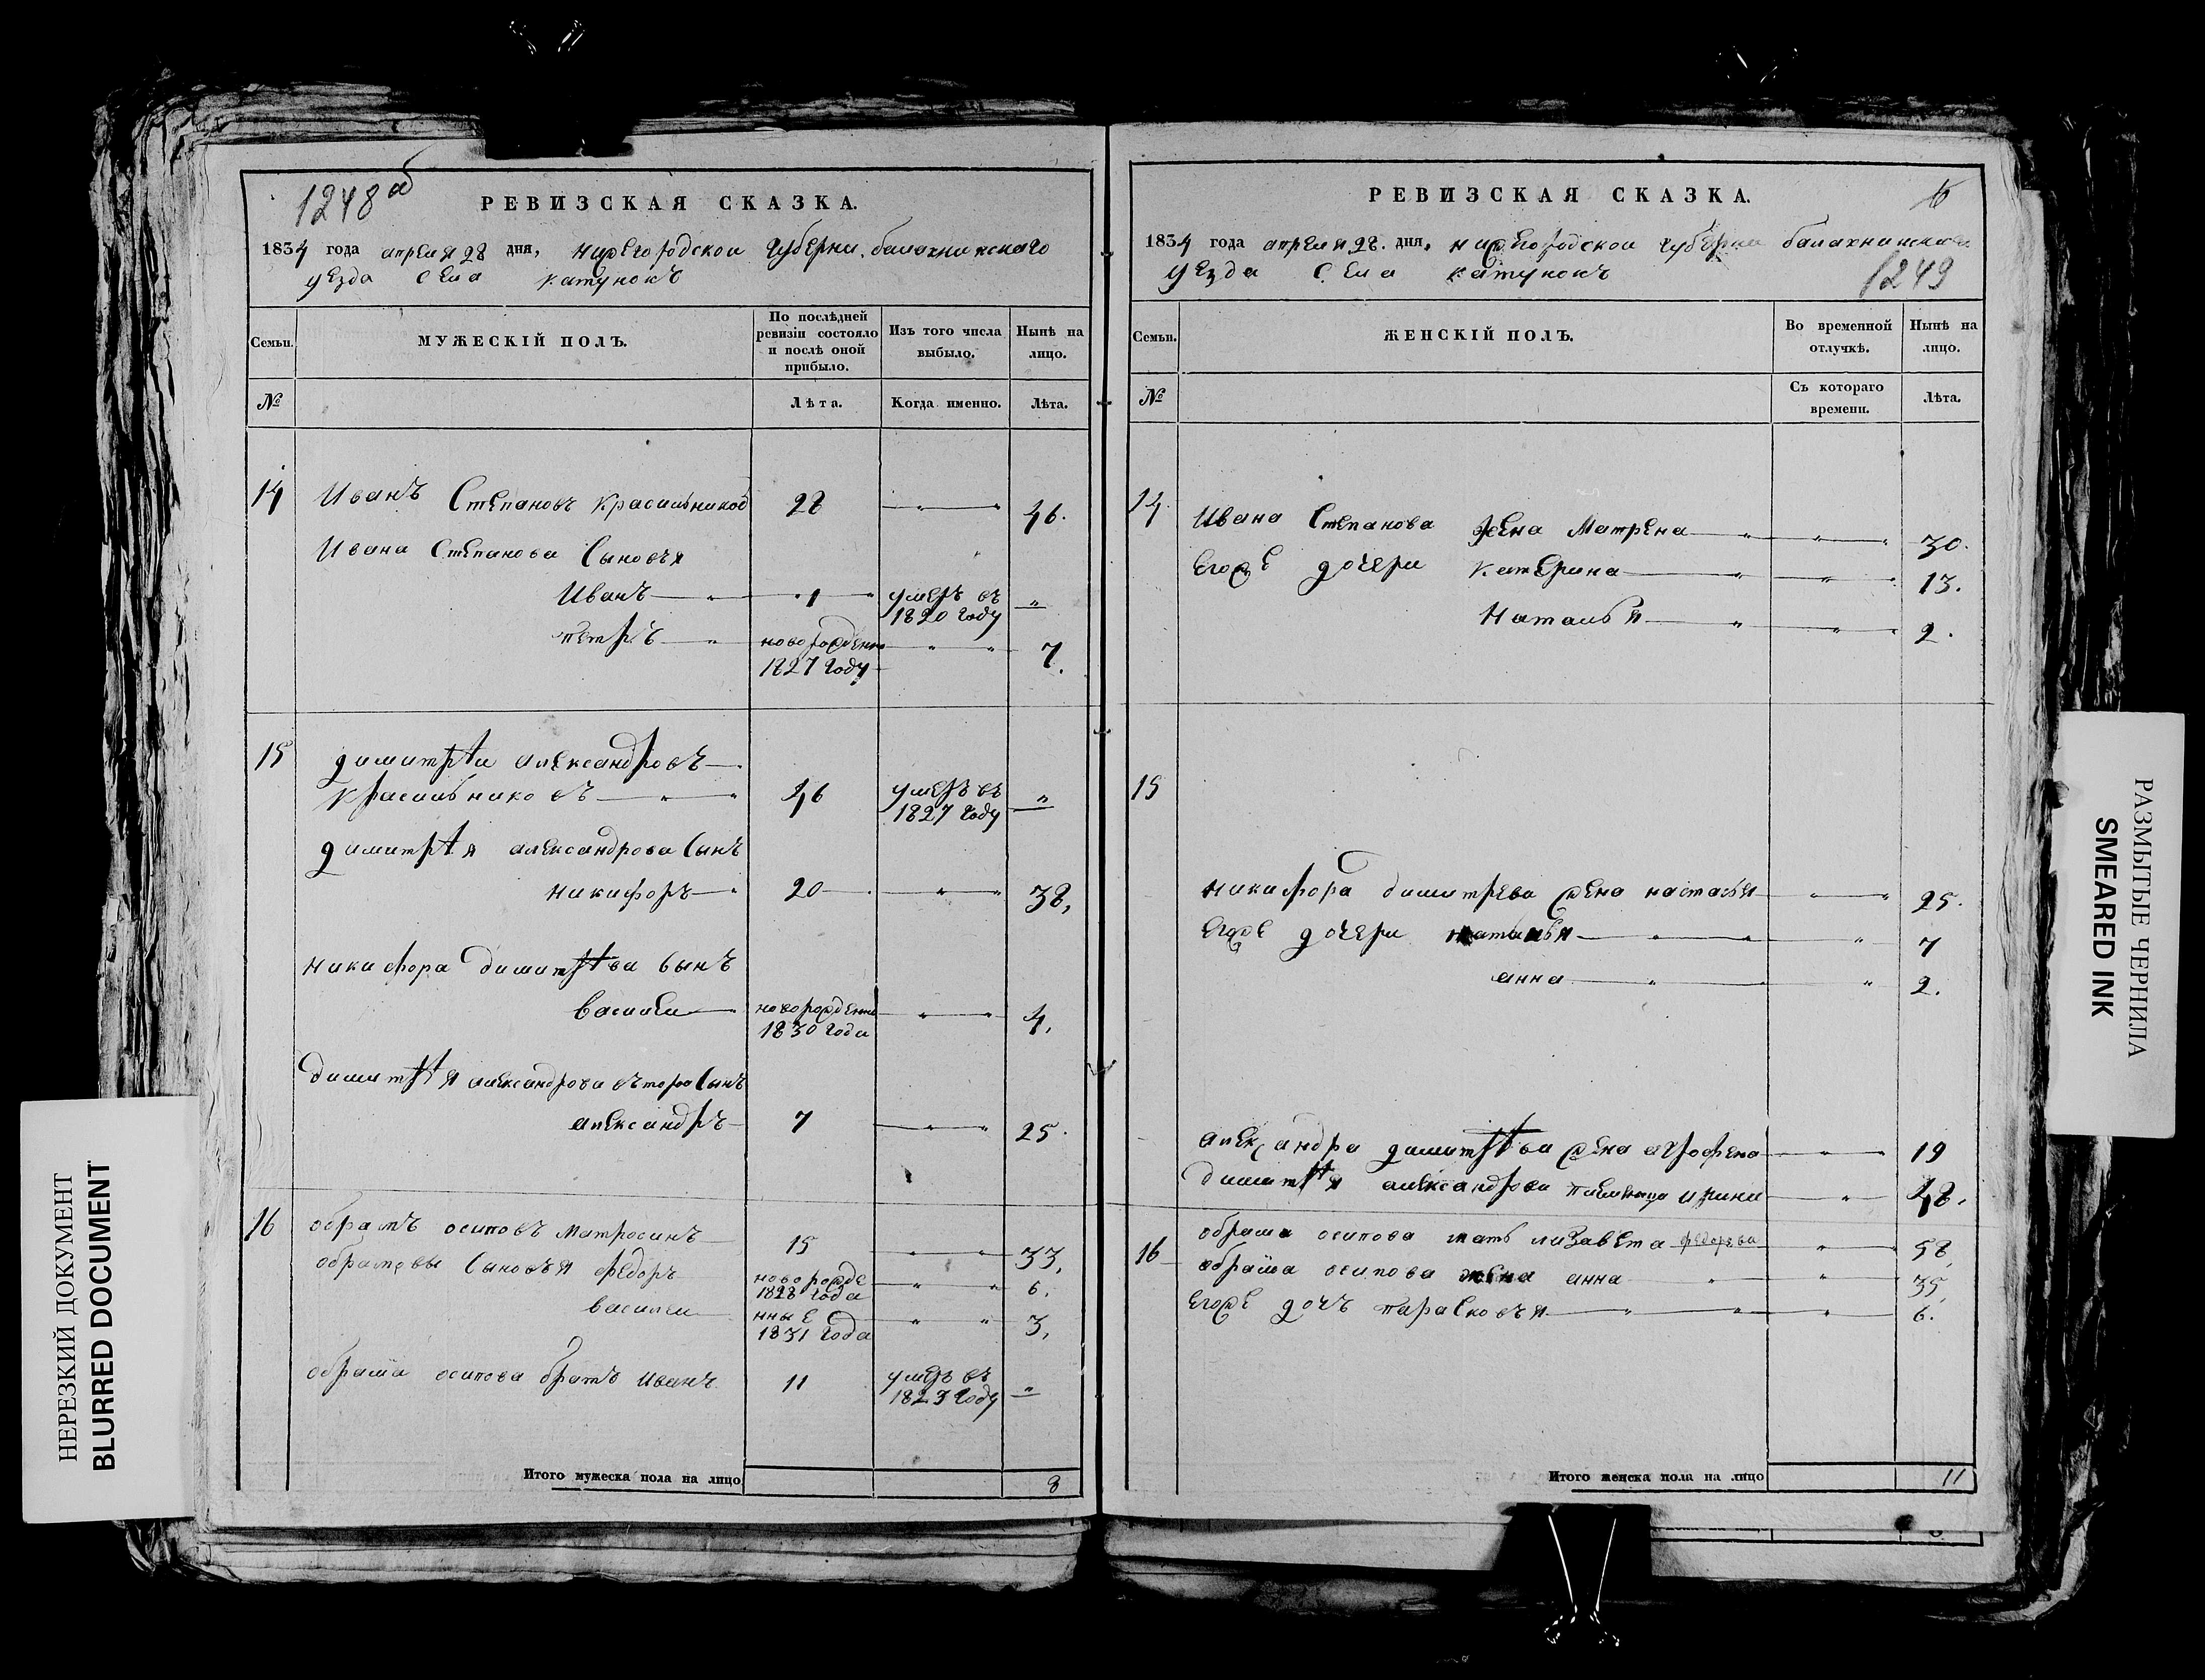 1248 об
РЕВИЗСКАЯ СКАЗКА.
1834 года апреля 28 дня, нижегородскои губерни. балахнинскаго
уезда села катунокъ
Семьи.
МУЖЕСКІЙ ПОЛЪ.
По послѣдней ревизіи состояло и послѣ оной прибыло.
Изъ того числа выбыло.
Нынѣ на лицо.
№
Лѣта.
Когда именно.
Лѣта.
14 Иванъ Степановъ Красильников 28 46.
Ивана Степанова Сыновья
Иванъ 1 умеръ въ 1820 году
петръ новорожденн 1827 году 7.
15 димитріи александровъ
Красильниковъ 46 умеръ въ 1827 году
димитрія александрова Сынъ
никифоръ 20 38,
никифора димитріва Сынъ
василеи новорожденн 1830 года 4,
димитрія александрова второи Сынъ
александръ 7 25.
16 ображъ осиповъ матросинъ 15 33,
образцовы Сыновья федоръ новорожде 1828 года 6,
василеи нные 1831 года 3,
осипова братъ иванъ 11 умеръ въ 1823 году
Итого мужеска пола на лицо 8
РЕВИЗСКАЯ СКАЗКА.
1834 года апреля 28. дня, нижегородскои губерни балахнинскаго
уезда села катунокъ
1249
Семьи.
ЖЕНСКІЙ ПОЛЪ.
Во временной отлучкѣ.
Нынѣ на лицо.
№
Съ котораго времени.
Лѣта.
14 Ивана Степанова жена Матрена 30.
Егоже дочери катерина 13.
Наталья 2.
15
никифора димитрева жена настасья 25.
Егоже дочери наталья 7
анна 2.
александра димитріва жена аграфена 19
димитрія александрова ирина 48,
16 осипова мать лизавета федорова 58,
осипова жена анна 35,
Егоже дочъ парасковья 6.
Итого женска пола на лицо 11
НЕРЕЗКИЙ ДОКУМЕНТ
BLURRED DOCUMENT
РАЗМЫТЫЕ ЧЕРНИЛА
SMEARED INK